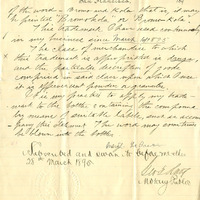 of the word "Bromo Kola" that is it may
be printed "Bromo Kola" or "Bromo-Kola".
This Statement I have used continuously
in my business since March 1st 1895.
The class of merchandise to which
this trademark is appropriated is drugs
and the particular description of goods
comprised in said class upon which I use
it is effervescent powder or granules.
It is my practice to apply my trade-
mark to the bottles containing the compound
by means of suitable labels, such as accom-
pany this statement. The word may sometimes
be blown into the bottle.
Subscribed and sworn to before me this
28th March 1896
Notary Public